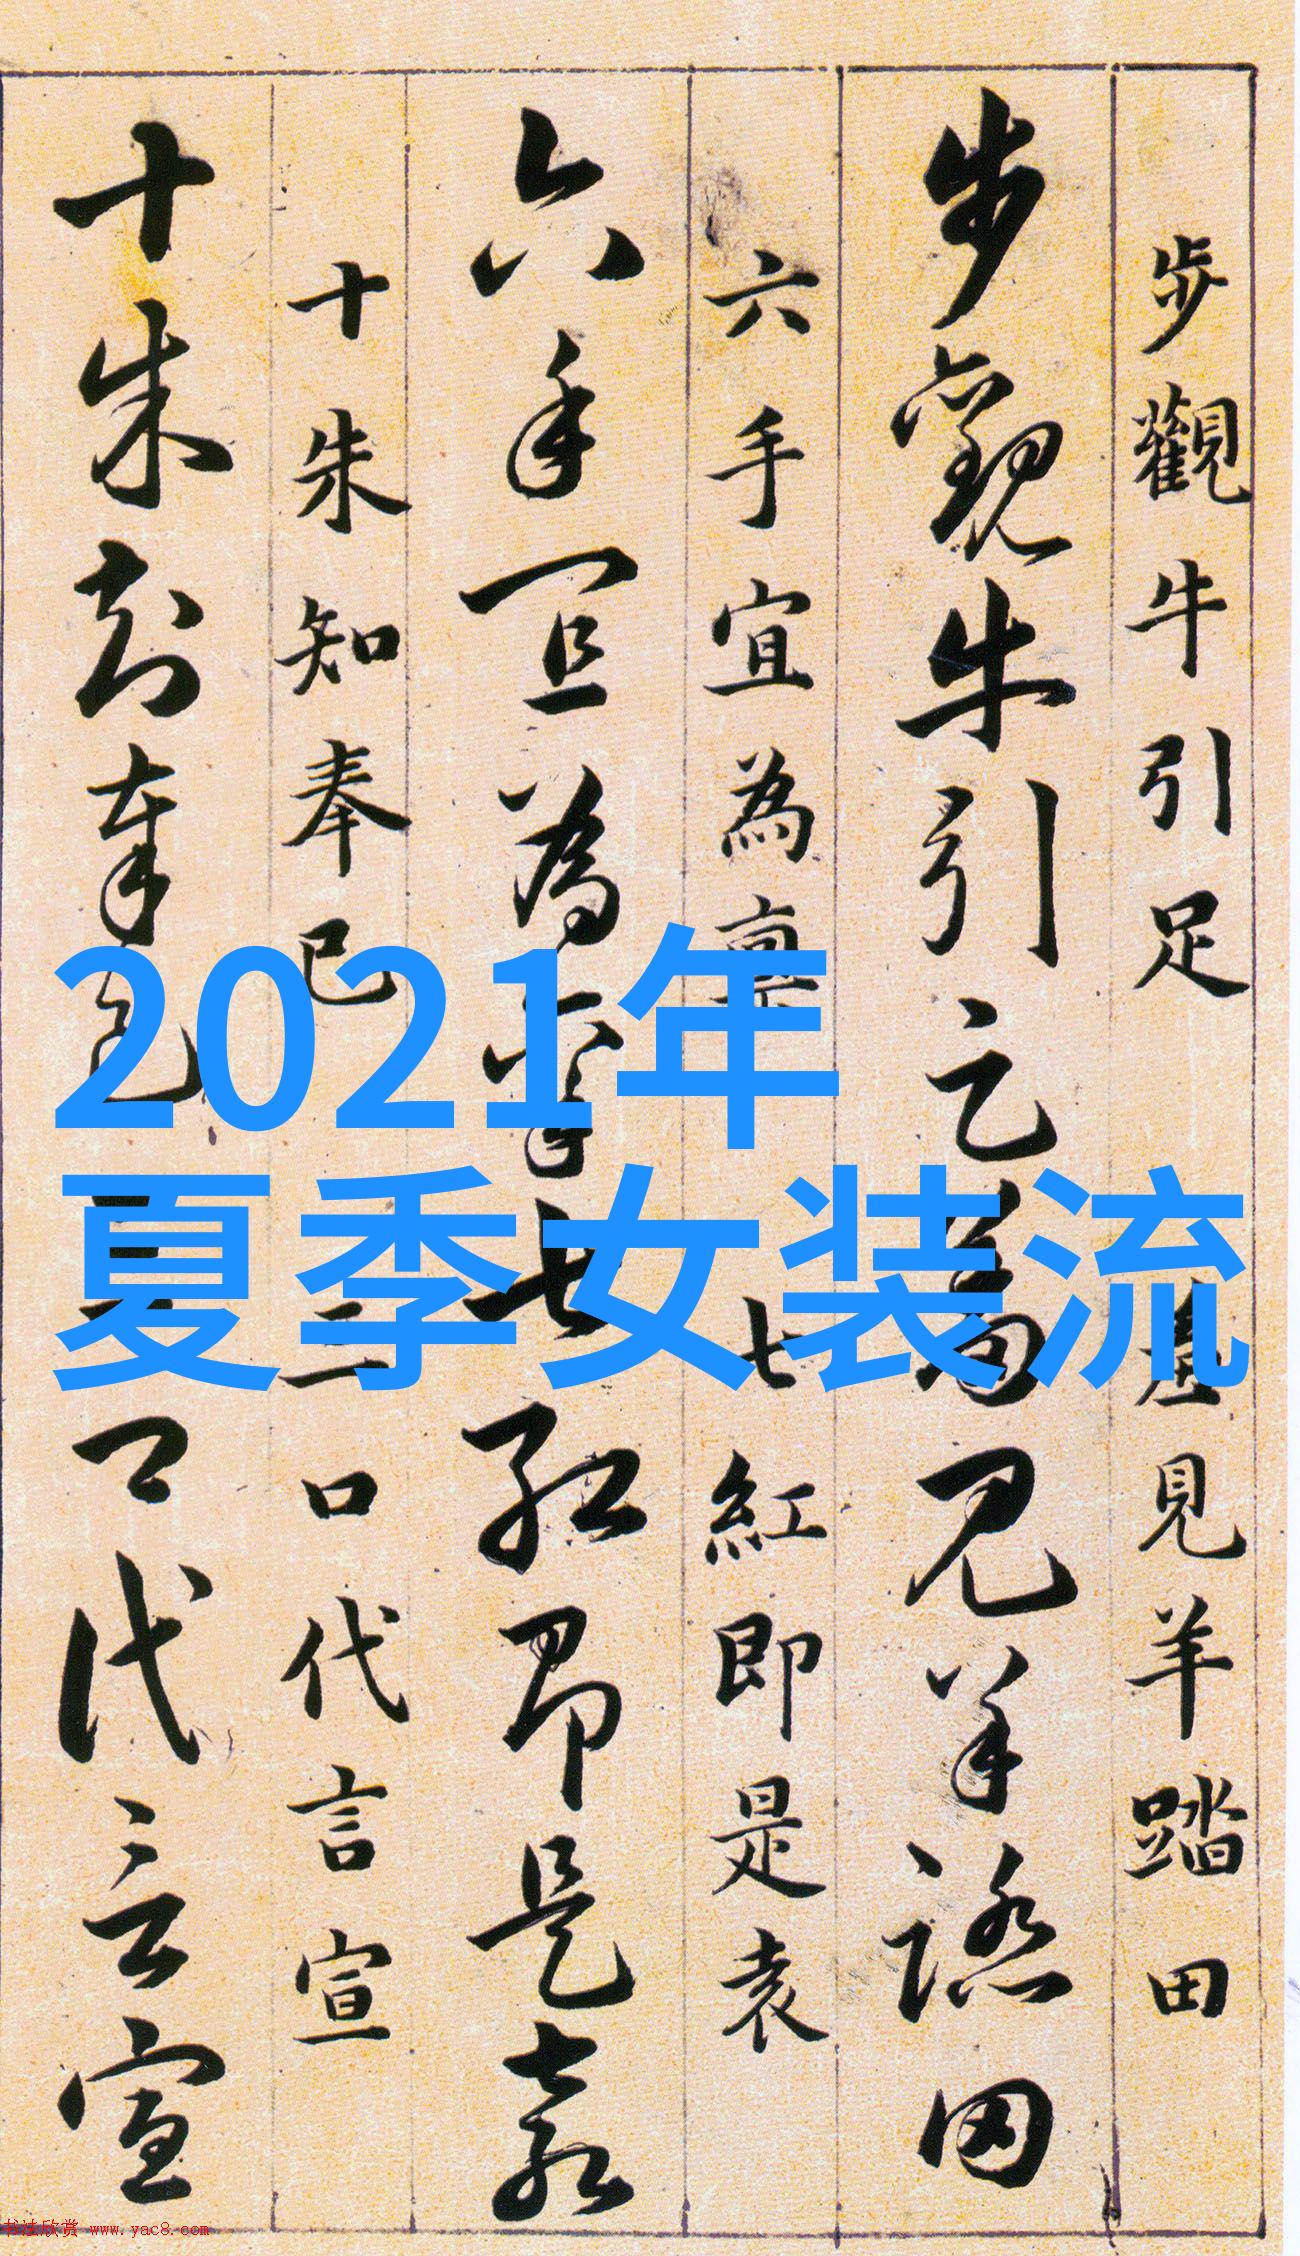 步觀牛引足羞見羊踏田
步觀牛引足羞見羊踏田
六手宜為稟七紅即是袁
六手宜為稟七紅即是袁
十朱知奉已三口代言宣
十朱知奉已三口代言宣
2021年
夏季女装流
书法欣赏 www.yac8.com